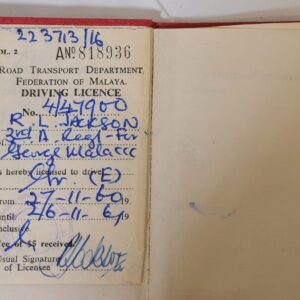 223713/16
L. 2
A Nº 818936
ROAD TRANSPORT DEPARTMENT
FEDERATION OF MALAYA.
DRIVING LICENCE
No. 4/47900
R. L. JACKSON
3rd A. Regt-
George Malacca
is hereby licensed to drive
(E)
from 27-11-60 19
until 26-11-61 19
inclusive.
Fee of $5 received.
Usual Signature
of Licensee